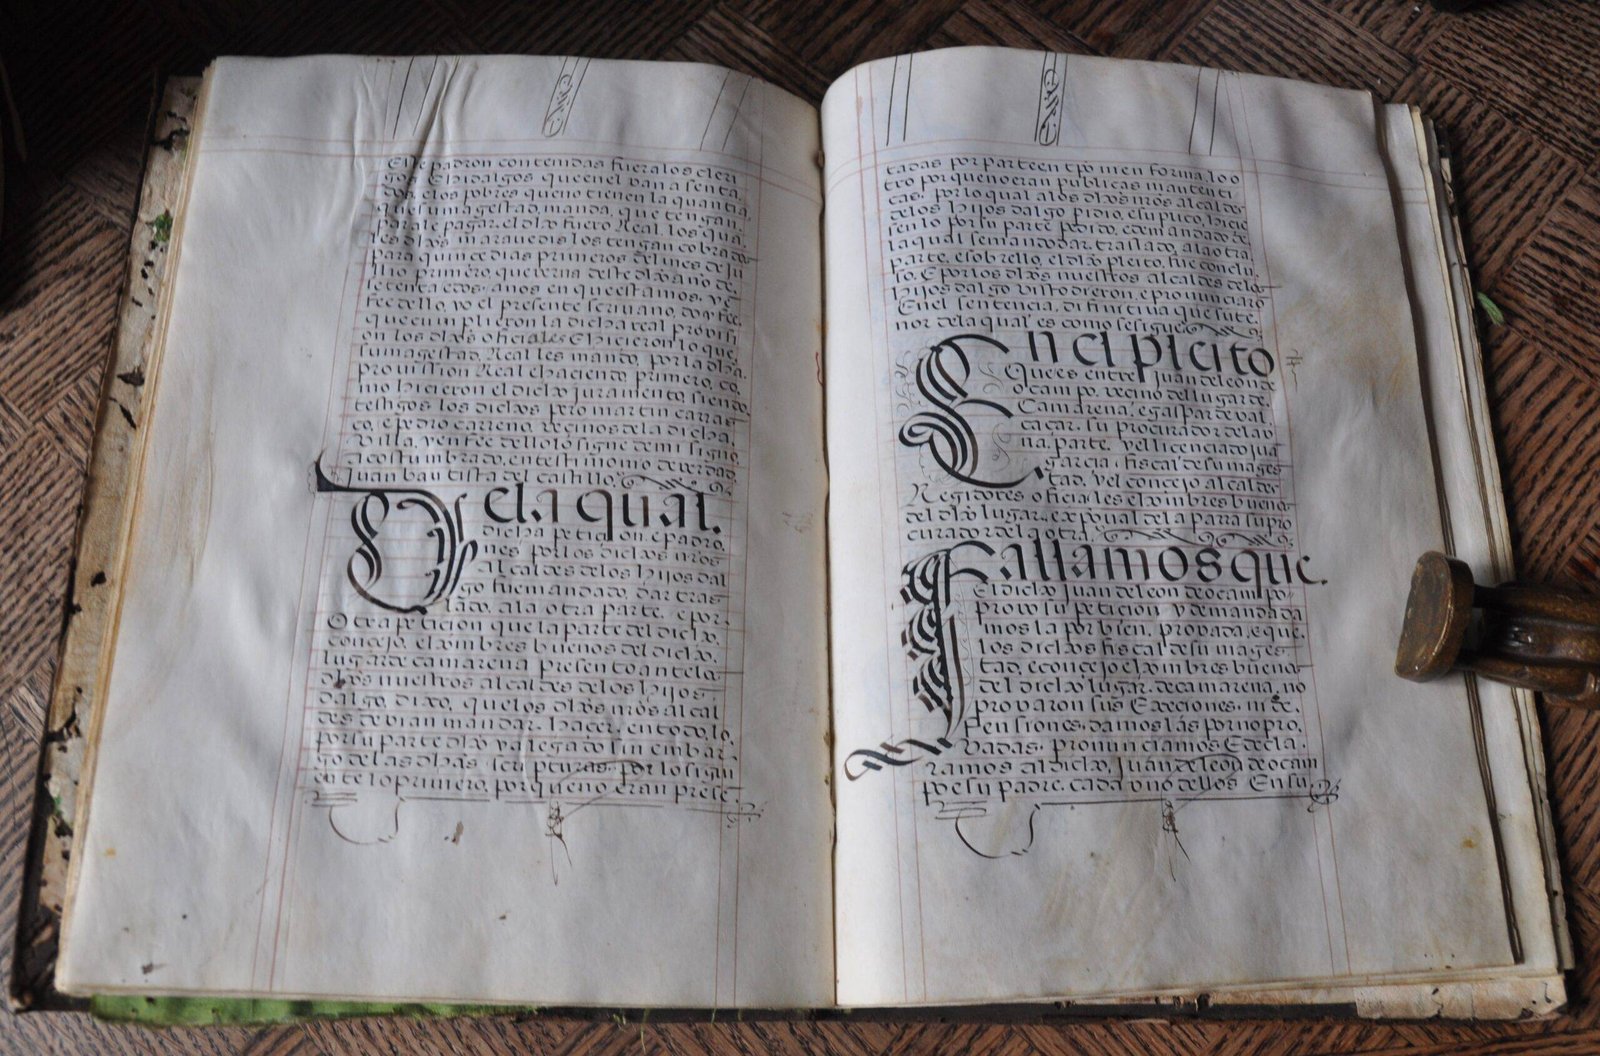 Este padron contenidas fuera los cleri
gos E hidalgos que en el van asenta
dos, e los pobres que no tienen la quantia,
que su magestad, manda, que tengan
para le pagar, el dho fuero Real, los qua
les dhos maravedis los tengan cobrados
para quince dias primeros del mes de ju
llio primero, que verna deste dho año de
setenta e dos, años en que estamos, y é
fee dello, yo el presente scrivano, doy fee,
que cumplieron la dicha real provisi
on los dhos oficiales E hicieron lo que
su magestad, Real les mando, por la dha
provission Real E haciendo primero, co
mo hicieron el dicho juramento, siendo
testigos los dichos pero martin carras
co, e pedro carreño, vecinos de la dicha
Villa, y en fee dello lo signe de mi signo
acostumbrado, en testimonio de verdad
juan bautista del castillo
De la qual.
dicha peticion, e padro
nes por los dichos nros
alcaldes de los hijos dal
go fue mandado, dar tras
lado, a la otra parte, e por
Otra peticion que la parte del dicho,
concejo, e lombres buenos del dicho
lugar de camarena presento ante los
dhos nuestros alcaldes de los hijos
dalgo, dixo, que los dhos nros alcal
des devian mandar, hacer, en todo lo
por su parte dho y alegado sin embar
go de las dhas scripturas, por lo sigui
ente lo primero, porque no eran prese
tadas por parte en tpo ni en forma, lo o
tro porque no eran publicas ni autenti
cas, por lo qual a los dhos nros alcaldes
de los hijos dalgo pidio, e suplico, hicie
sen lo por su parte pedido, e demandado de
la qual se mando dar, traslado, a la otra
parte, e sobre llo, el dho pleito, fue conclu
so, E por los dhos nuestros alcaldes de los
hijos dalgo visto dieron, e pronunciaro
En el sentencia, difinitiva que su te
nor de la qual es como se sigue
En el pleito
Que es entre juan de leon de
ocampo, vecino del lugar de
Camarena, e gaspar de val
cacar, su procurador de la v
na, parte, y el licenciado jua
garcia, fiscal de su mages
tad, y el concejo alcaldes
Regidores oficiales e lombres buenos
del dho lugar, e xpoval de la parra su pro
curador del otra,
Fallamos que.
El dicho juan de leon de ocampo
provo su peticion y demanda da
mos la por bien, provada, e que,
los dichos fiscal de su mages
tad, e concejo e lombres buenos
del dicho lugar, de camarena, no
provaron sus Execiones,
pensiones, damos las por no pro
vadas, pronunciamos E decla
ramos al dicho, juan de leon de ocam
po e su padre, cada uno dellos En su